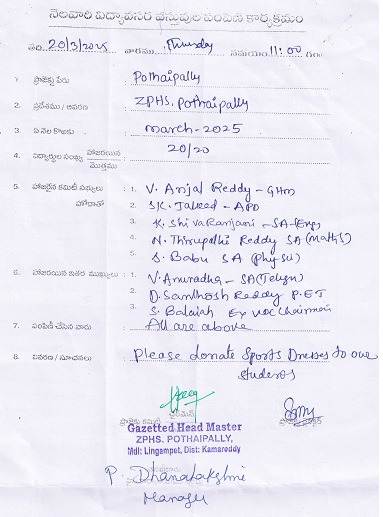 నెలవారి విద్యావసర వస్తువుల పంపిణీ కార్యక్రమం
తేది. 20/3/2025 వారము Thursday సమయం 11:00 గం.
1. ప్రాజెక్టు పేరు : Pothaipally
2. ప్రదేశము / ఆవరణ : ZPHS. Pothaipally
3. ఏ నెల కొఱకు : March-2025
4. విద్యార్థుల సంఖ్య హాజరయిన / మొత్తము : 20/20
5. హాజరైన కమిటీ సభ్యులు : 1. V. Anjal Reddy - GHM
హోదాతో 2. SK. Jaleed - APO
3. K. Shivaranjani - SA-(Eng)
4. N. Thirupathi Reddy SA (Maths)
5. S. Babu SA (Phy Sci)
6. హాజరయిన ఇతర ముఖ్యులు : 1. V. Anuradha - SA (Telugu)
2. D. Santhosh Reddy P.ET
3. S. Balaiah Ex VDC Chairman
7. పంపిణీ చేసిన వారు : All are above
8. వివరణ / సూచనలు : Please donate Sports Dresses to our
students
ప్రాజెక్టు కమిటీ
Gazetted Head Master
ZPHS. POTHAIPALLY,
Mdl: Lingampet, Dist: Kamareddy
P. Dhanalakshmi
Manager